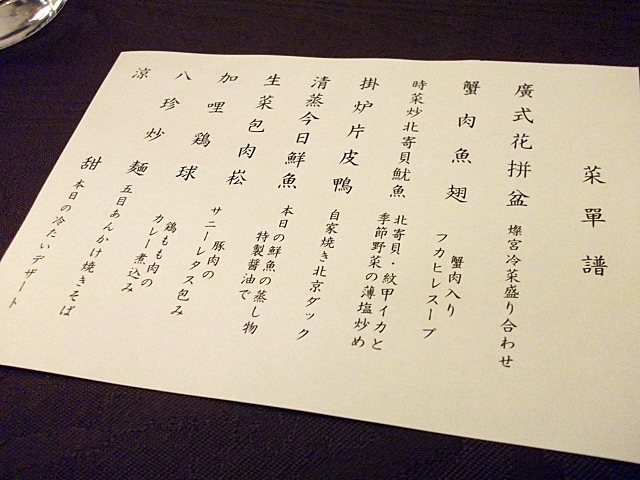 菜單譜
廣式花拼盆
燦宮冷菜盛り合わせ
蟹肉魚翅
蟹肉入り
フカヒレスープ
時菜炒北寄貝魷魚
北寄貝・紋甲イカと
季節野菜の薄塩炒め
掛炉片皮鴨
自家焼き北京ダック
清蒸今日鮮魚
本日の鮮魚の蒸し物
特製醤油で
生菜包肉崧
豚肉の
サニーレタス包み
加哩鶏球
鶏もも肉の
カレー煮込み
八珍炒麺
五目あんかけ焼きそば
涼甜
本日の冷たいデザート